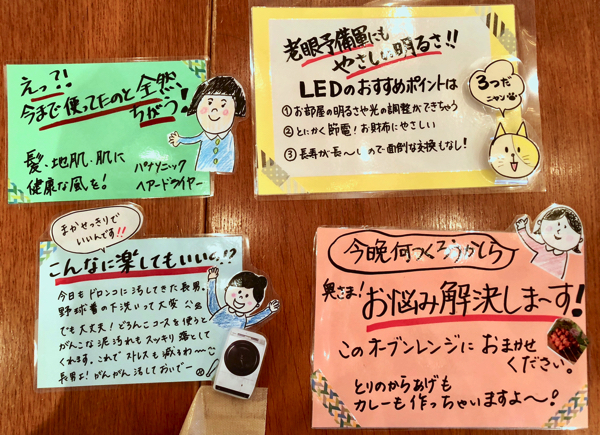 えっ?!
今まで使ってたのと全然
ちがう!
髪・地肌・肌に
健康な風を!
パナソニック
ヘアードライヤー
老眼予備軍にも
やさしい明るさ!!
LEDのおすすめポイントは
①お部屋の明るさや光の調整ができちゃう
②とにかく節電!お財布にやさしい
③長寿が長〜いので面倒な交換もなし!
3つだ
ニャン
まかせっきりで
いいんです!!
こんなに楽してもいいの!?
今日もドロンコに汚してきた長男。
野球着の下洗いって大変
でも大丈夫!どろんこコースを使うと
がんこな泥汚れもスッキリ落として
くれます。これでストレスも減るわ〜
長男よ!がんがん汚しておいでー
今晩何つくろうかしら
奥さま!お悩み解決しま〜す!
このオーブンレンジにおまかせ
ください。
とりのからあげも
カレーも作っちゃいますよ〜!